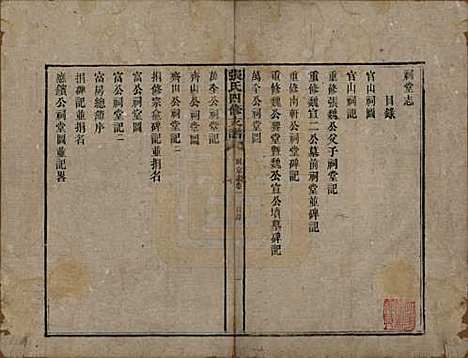 祠堂志
目錄
官山祠圖
官山祠記
重修張魏公父子祠堂記
重修魏宣二公墓前祠堂並碑記
重修南軒公祠堂記
重修魏公雙堂暨魏公宣公墳墓碑記
萬全公祠堂圖
張氏四修族譜
祠堂志卷
目錄
一
萬全公祠堂記
齊山公祠堂圖
齊山公祠堂記二
捐修宗堂碑記並捐名
富公祠堂記二
富公祠堂圖
富房總薄序
捐名
應繽公祠堂圖並記畧